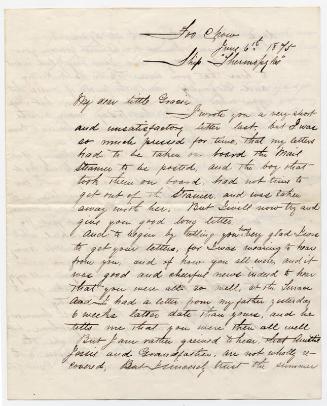 Foo Chow
June 6th 1875
Ship "Thermopylae"
My dear little Gracie
I wrote you a very short
and unsatisfactory letter last, but I was
so much pressed for time, that my letters
had to be taken on board the Mail
Steamer to be posted, and the boy that
took them on board, had not time to
get out of the Steamer, and was taken
away with her, But I will now try and
give you good long letter
And to begin by telling you how glad I was
to get your letters, for I was wearing to hear
from you, and of how you all were, and it
was good and cheerful news indeed to hear
that you were all so well, at the Terrace
and I had a letter from my father yesterday
6 weeks later date than yours, and he
tells me that you were then all well
But I am rather grieved to hear that Auntie
Jessie and Grandfather, are not wholly re-
covered, But I sincerely trust the summer